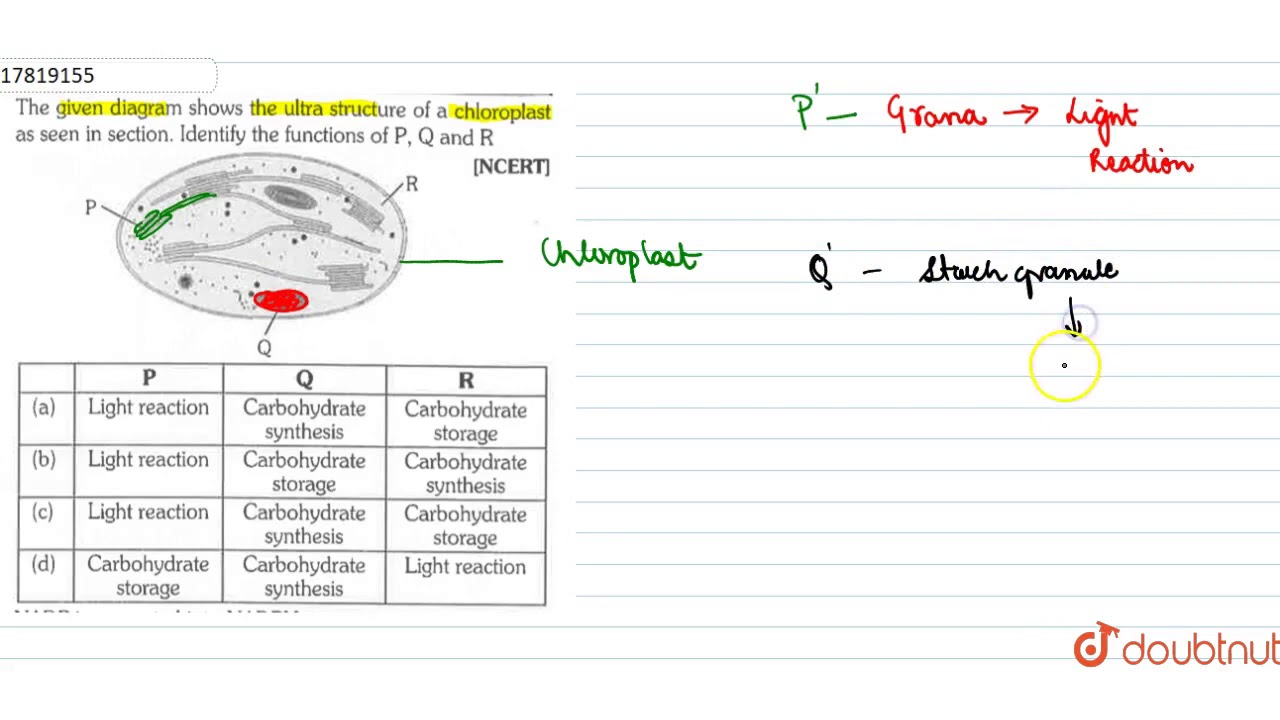 17819155
The given diagram shows the ultra structure of a chloroplast
as seen in section. Identify the functions of P, Q and R
[NCERT]
P
R
Q
Chloroplast
P Q R
(a) Light reaction Carbohydrate synthesis Carbohydrate storage
(b) Light reaction Carbohydrate storage Carbohydrate synthesis
(c) Light reaction Carbohydrate synthesis Carbohydrate storage
(d) Carbohydrate storage Carbohydrate synthesis Light reaction
P' — Grana → Light
Reaction
Q' — Starch granule
↓
doubtnut